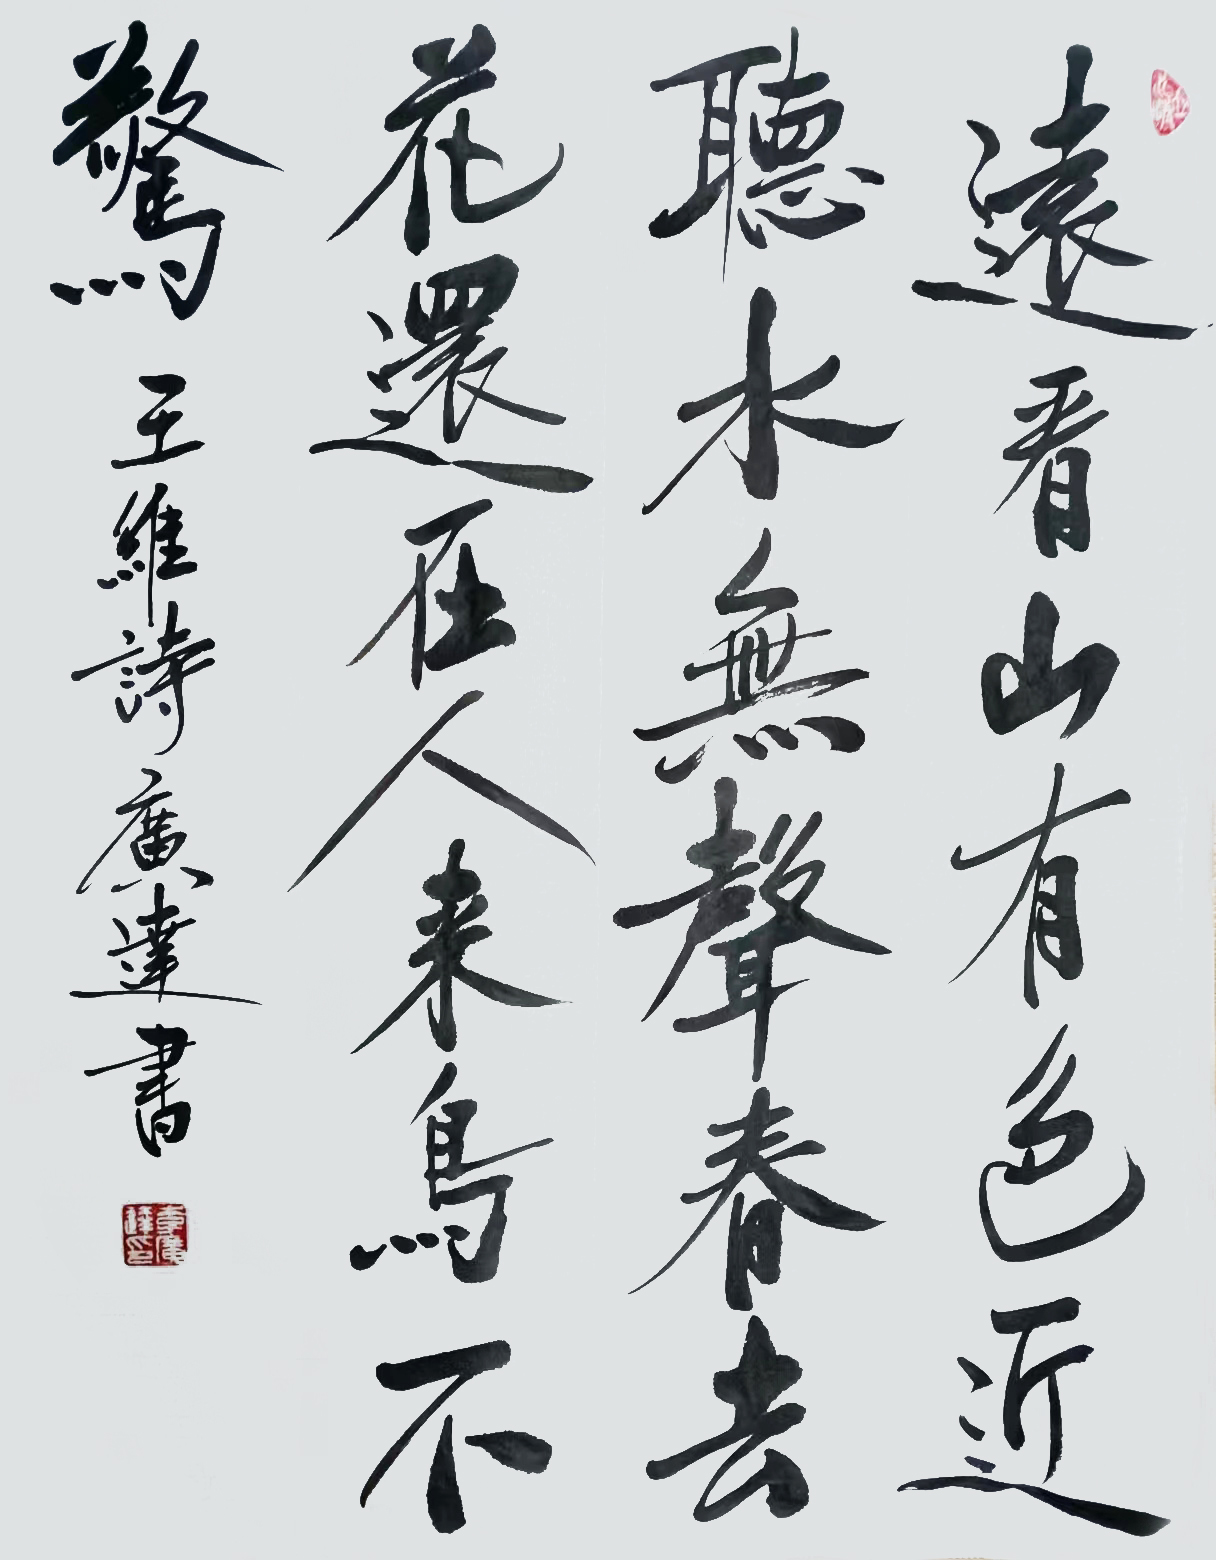 遠看山有色近
聽水無聲春去
花還在人来鳥不
驚 王維詩廣達書
李廣達印